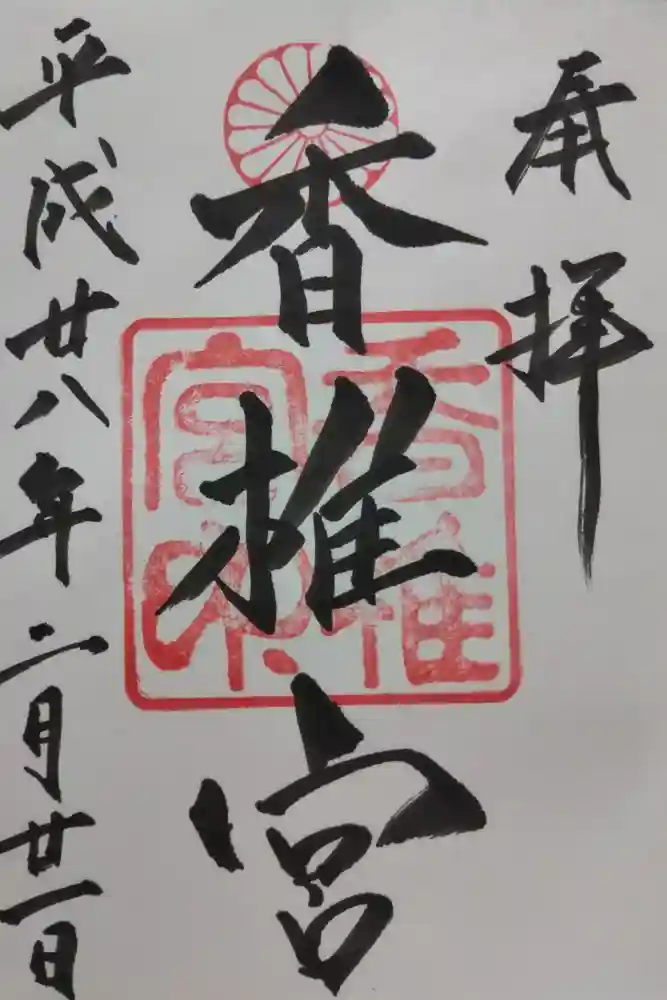 奉拝
香椎宮
平成廿八年二月廿一日
香椎宮印